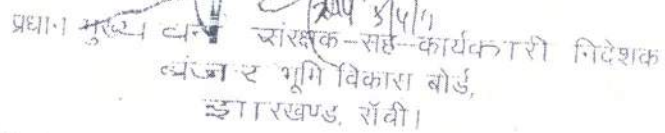 प्रधान मुख्य वन संरक्षक-सह-कार्यकारी निदेशक
बंजर भूमि विकास बोर्ड,
झारखण्ड, राँची।